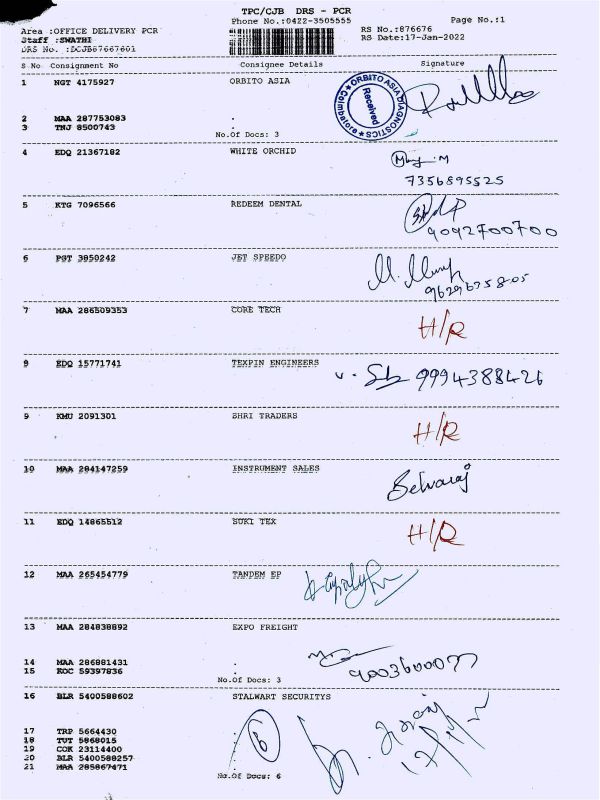 TPC/CJB DRS - PCR
Phone No.:0422-3505555
Page No.:1
Area :OFFICE DELIVERY PCR
RS No.:876676
Staff :SWATHI
RS Date:17-Jan-2022
DRS No. :DCJB67667601
S No Consignment No Consignee Details Signature
1 NGT 4175927 ORBITO ASIA
ORBITO ASIA DIAGNOSTICS
Received
Coimbatore
2 MAA 287753083 .
3 TNJ 8500743 .
No.Of Docs: 3
4 EDQ 21367182 WHITE ORCHID
7356895525
5 KTG 7096566 REDEEM DENTAL
9092700700
6 PST 3850242 JET SPEEDO
7 MAA 286509353 CORE TECH H/R
8 EDQ 15771741 TEXPIN ENGINEERS 9994388426
9 KMU 2091301 SHRI TRADERS H/R
10 MAA 284147259 INSTRUMENT SALES Selvaraj
11 EDQ 14865512 SUKI TEX H/R
12 MAA 265454779 TANDEM EP
13 MAA 284838892 EXPO FREIGHT
14 MAA 286881431 .
15 KOC 59397836 .
No.Of Docs: 3
16 BLR 5400588602 STALWART SECURITYS
6
17 TRP 5664430
18 TUT 5868015
19 COK 23114400
20 BLR 5400588257
21 MAA 285867471
No.Of Docs: 6